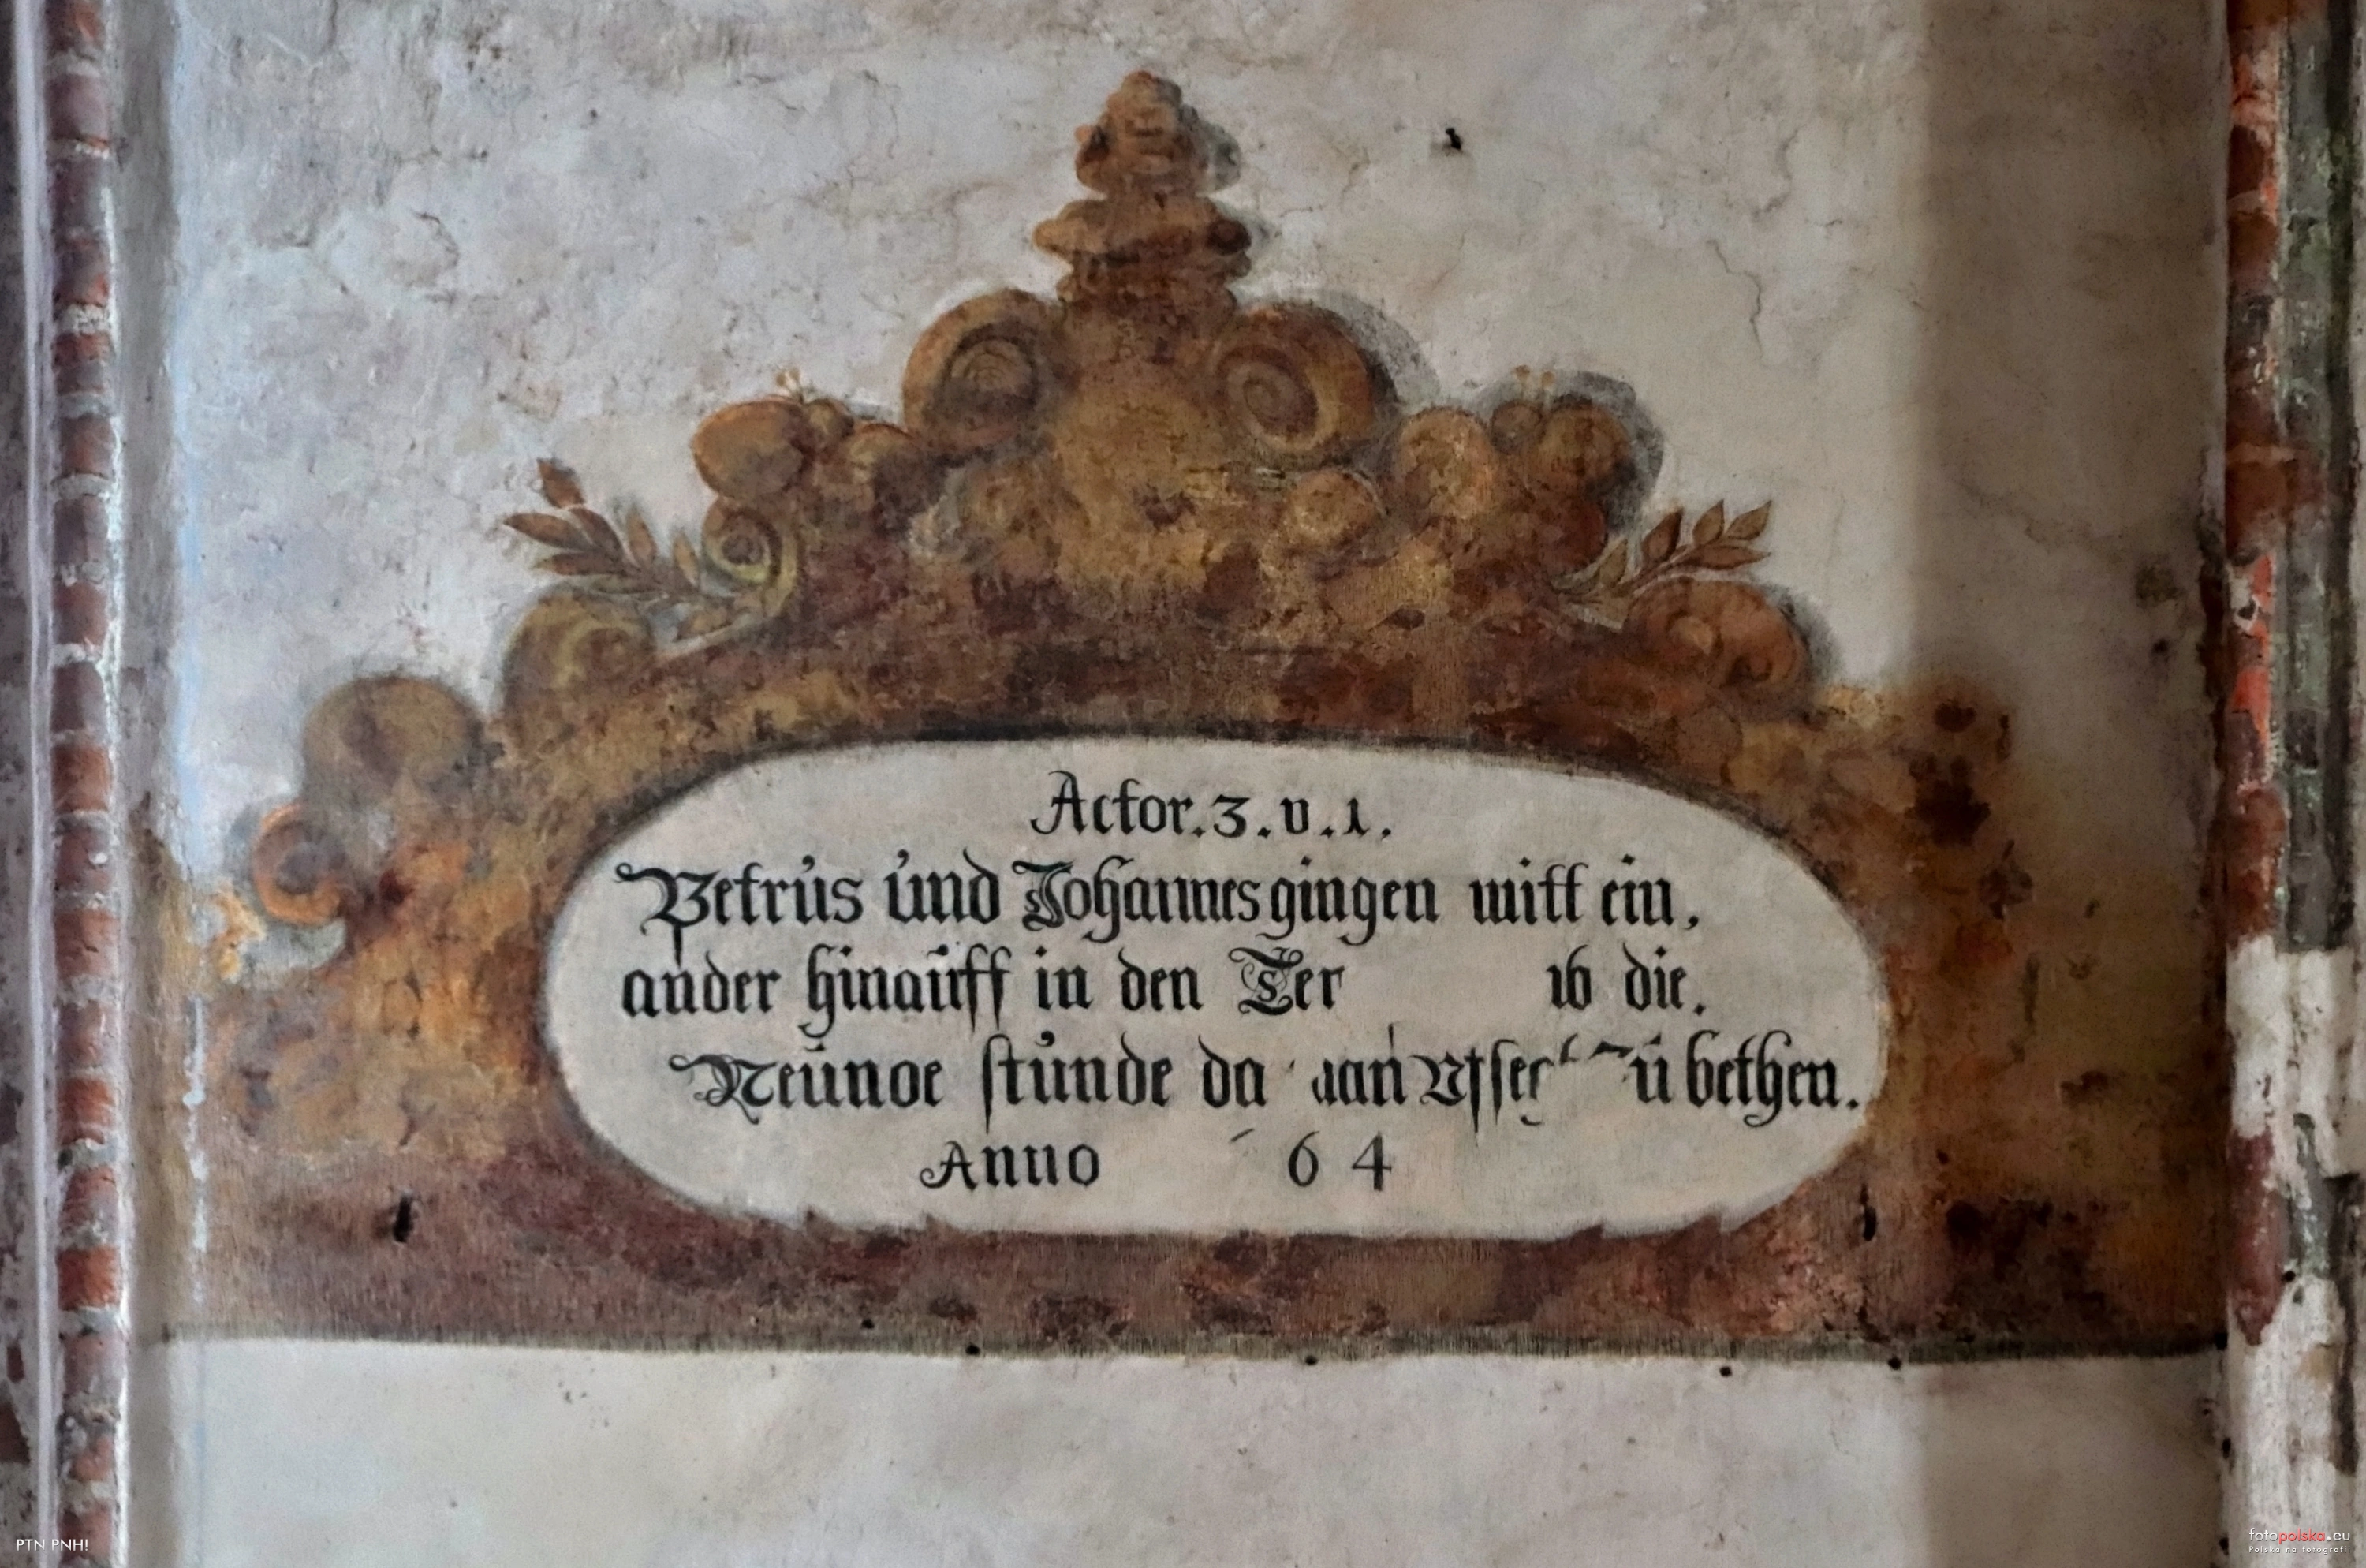 Actor. 3. v. 1.
Petrus und Johannes gingen mitt ein,
ander hinauff in den die.
stunde bethen.
Anno 64
PTN PNH!
fotopolska.eu
Polska na fotografii